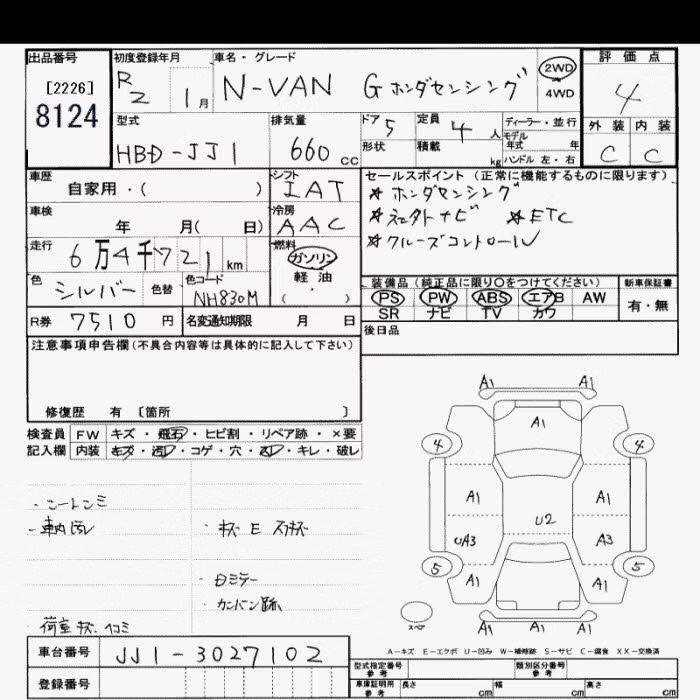 出品番号 初度登録年月 車名・グレード 評価点
[2226] R2 1月 N-VAN G ホンダセンシング 2WD 4WD 4
8124
型式 排気量 ドア 5 定員 4人 ディーラー・並行 外装 内装
HBD-JJ1 660cc 形状 積載 kg モデル年式 年 C C
ハンドル 左・右
車歴 シフト セールスポイント(正常に機能するものに限ります)
自家用・( ) IAT ＊ホンダセンシング
車検 冷房 ＊社外ナビ ＊ETC
年 月( 日) AAC ＊クルーズコントロール
走行 燃料
6万4千721km ガソリン
軽油
( )
色 シルバー 色替 色コード NH830M 装備品(純正品に限り○をつけてください) 新車保証書
PS PW ABS エアB AW 有・無
SR ナビ TV カワ
R券 7510円 名変通知期限 月 日 後日品
注意事項申告欄(不具合内容等は具体的に記入して下さい)
修復歴 有 [箇所 ]
検査員 FW キズ・飛石・ヒビ割・リペア跡・×要
記入欄 内装 キズ・汚レ・コゲ・穴・凹レ・キレ・破レ
A1 A1
A1
4 4
A1 A1
U2
UA3 A3
5 5
A1 A1
A1 A1
スペア
・車内汚レ
・カンバン跡
荷室キズ.ヘコミ
A-キズ E-エクボ U-凹み W-補修跡 S-サビ C-腐食 XX-交換済
車台番号 JJ1-3027102
型式指定番号 参考 類別区分番号 参考
登録番号 車庫証明用 参考 長さ cm 幅 cm 高さ cm